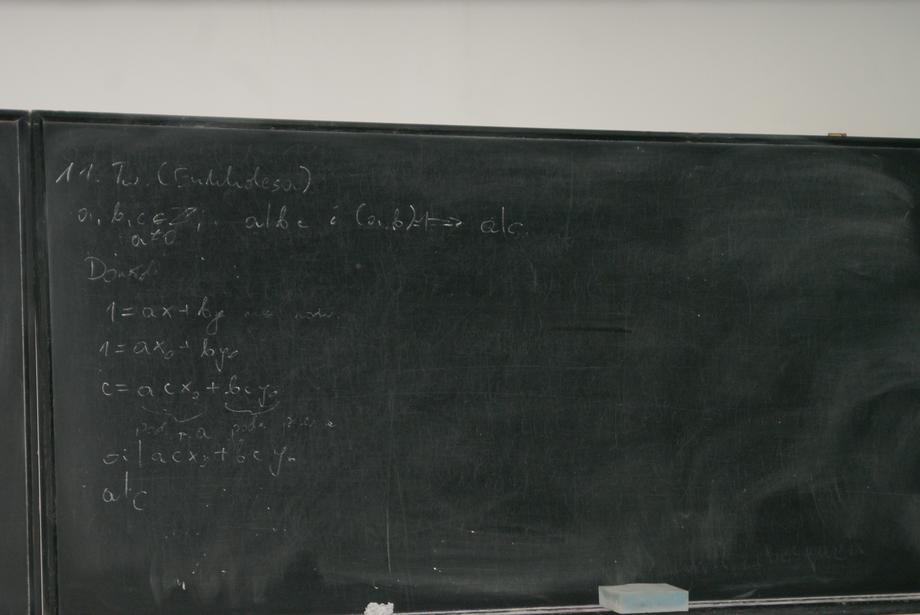 11. Tw. (Euklidesa)
a, b, c ∈ ℤ, a|bc i (a,b)=1 ⟹ a|c.
a≠0
Dowód
1 = ax + by ma
1 = ax₀ + by₀
c = acx₀ + bcy₀
podz. przez a podz. przez a
a | acx₀ + bcy₀
a|c